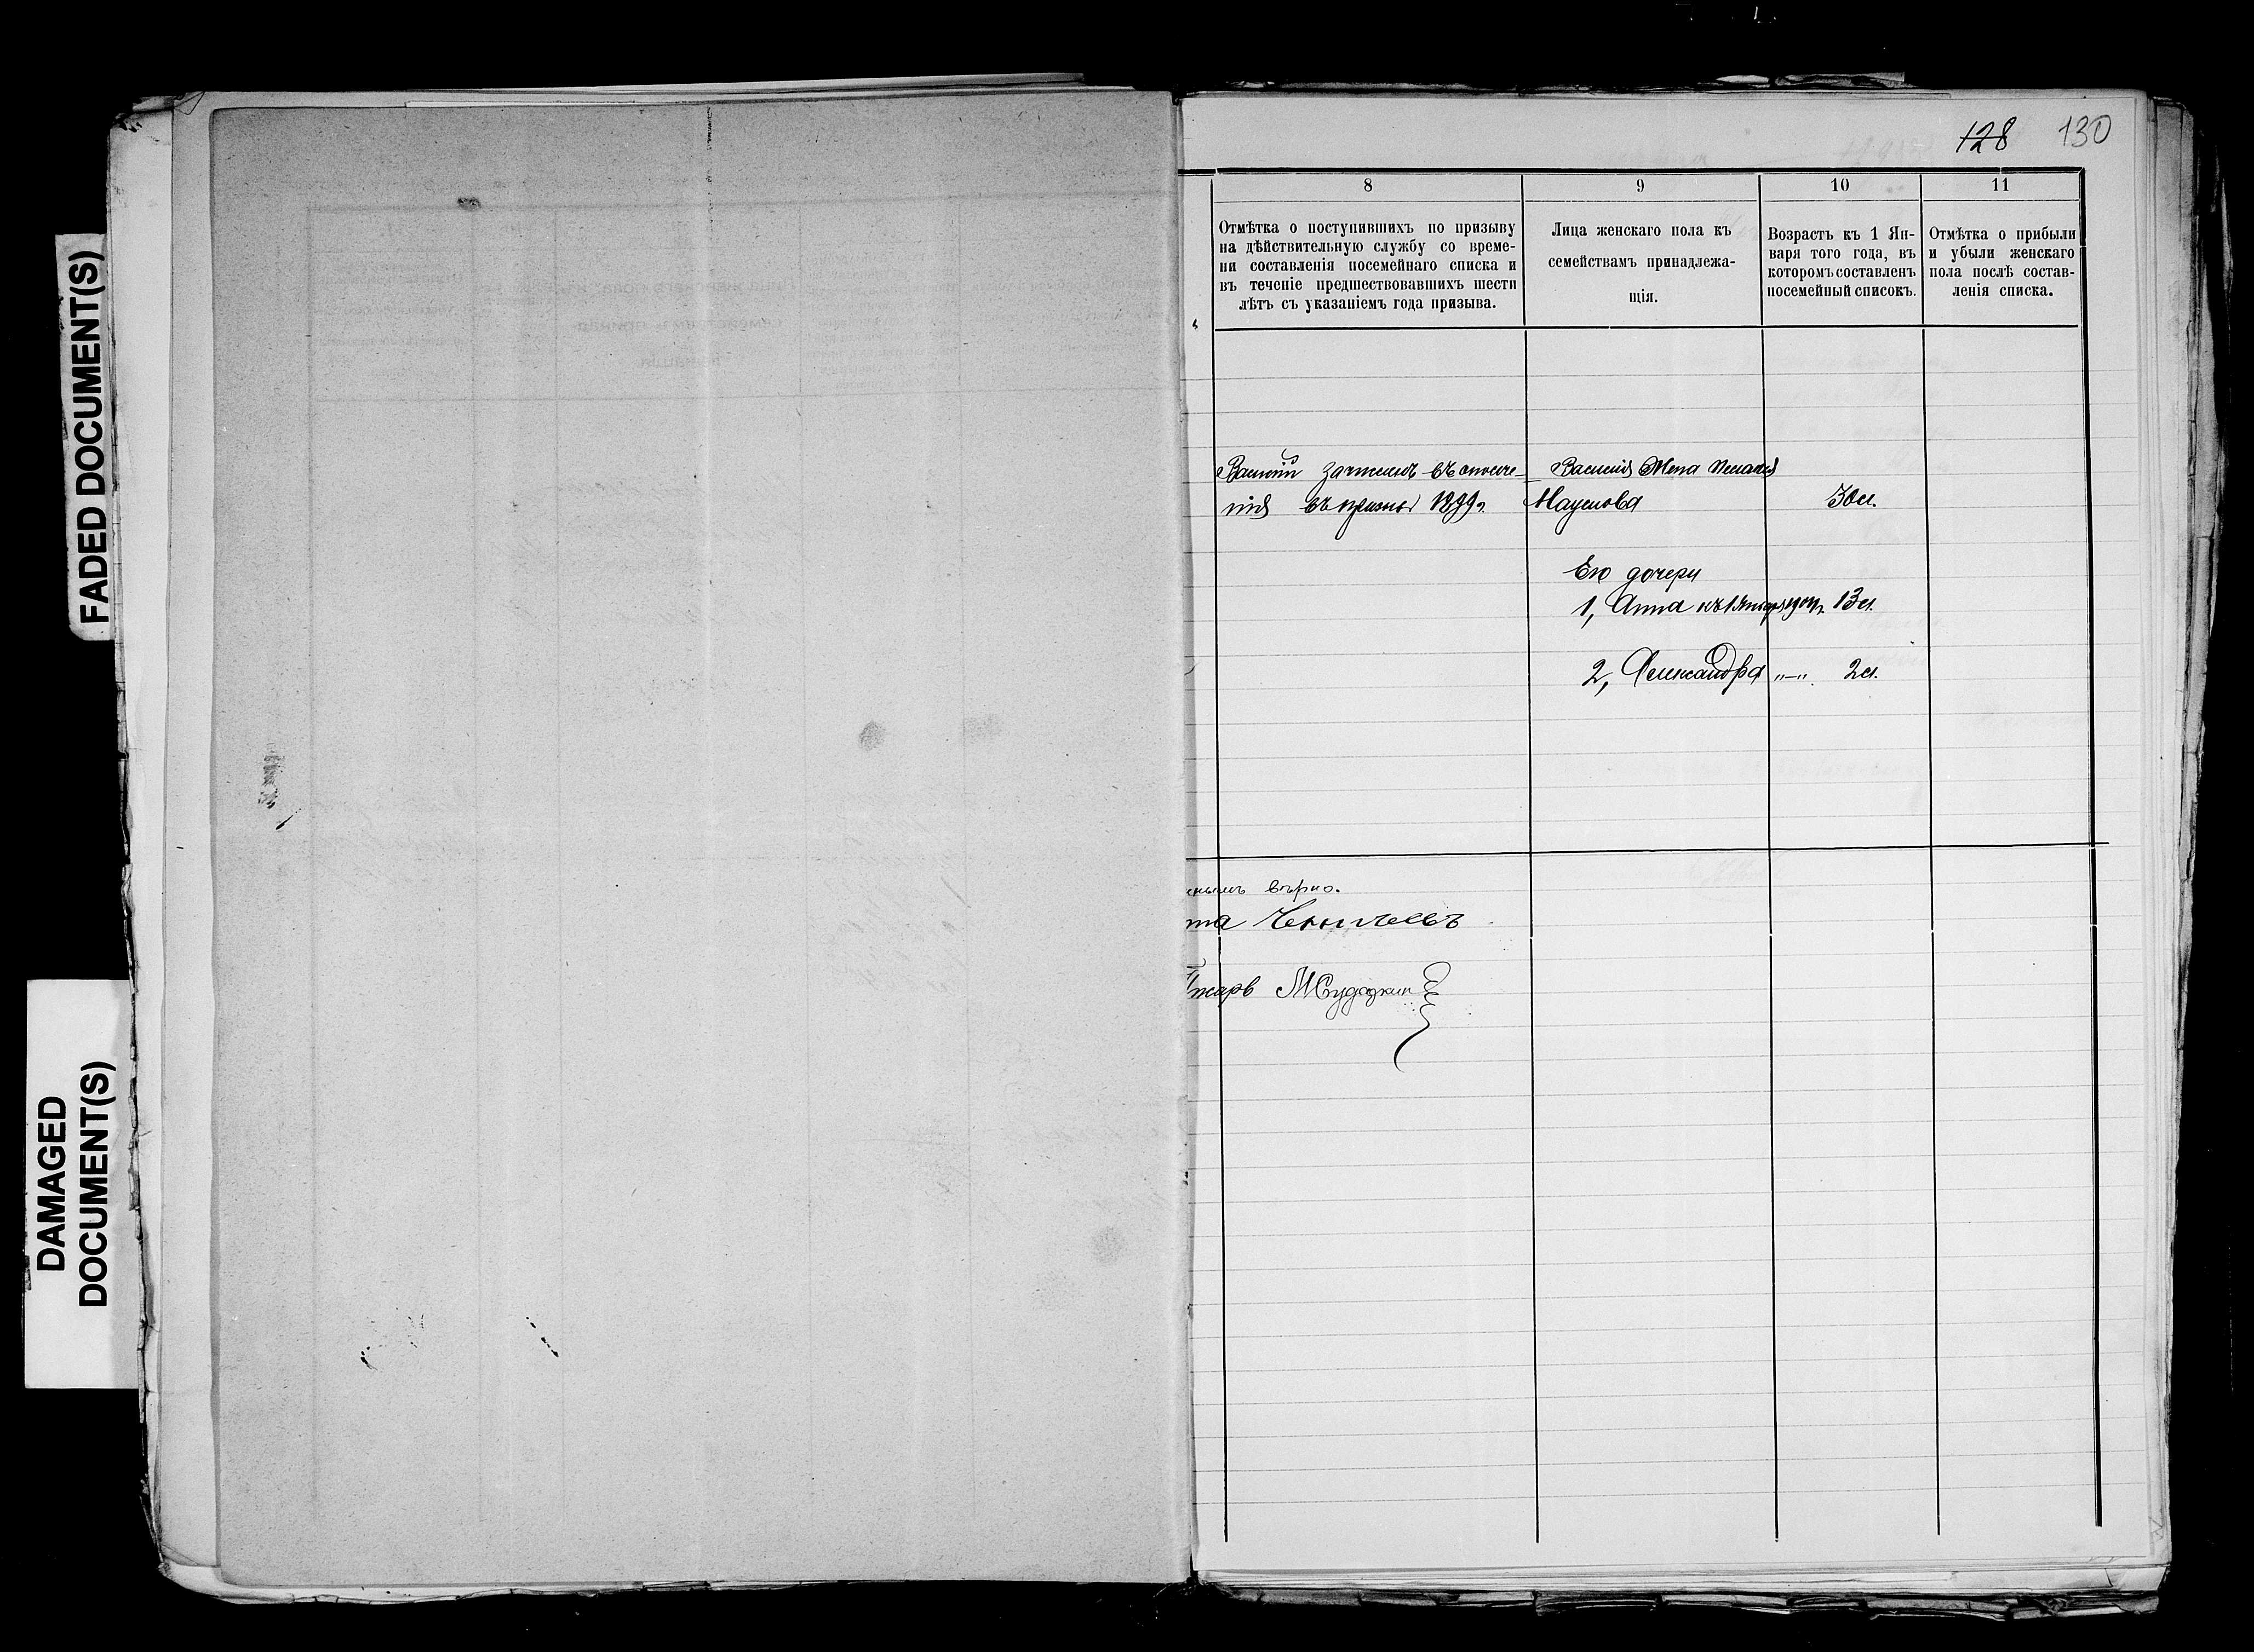 FADED DOCUMENT(S)
DAMAGED
DOCUMENT(S)
128 130
8
Отмѣтка о поступившихъ по призыву
на дѣйствительную службу со време-
ни составленія посемейнаго списка и
въ теченіе предшествовавшихъ шести
лѣтъ съ указаніемъ года призыва.
9
Лица женскаго пола къ
семействамъ принадлежа-
щія.
10
Возрастъ къ 1 Ян-
варя того года, въ
которомъ составленъ
посемейный списокъ.
11
Отмѣтка о прибыли
и убыли женскаго
пола послѣ состав-
ленія списка.
Василій зачисленъ въ ополче-
нія въ призыв 1899 г.
Василія Жена Пелагія
Наумова 30 л.
Его дочери
1, Анна къ 1 января 1909 г. 13 л.
2, Александра „—„ 2 л.
вѣрно.
та
Писарь